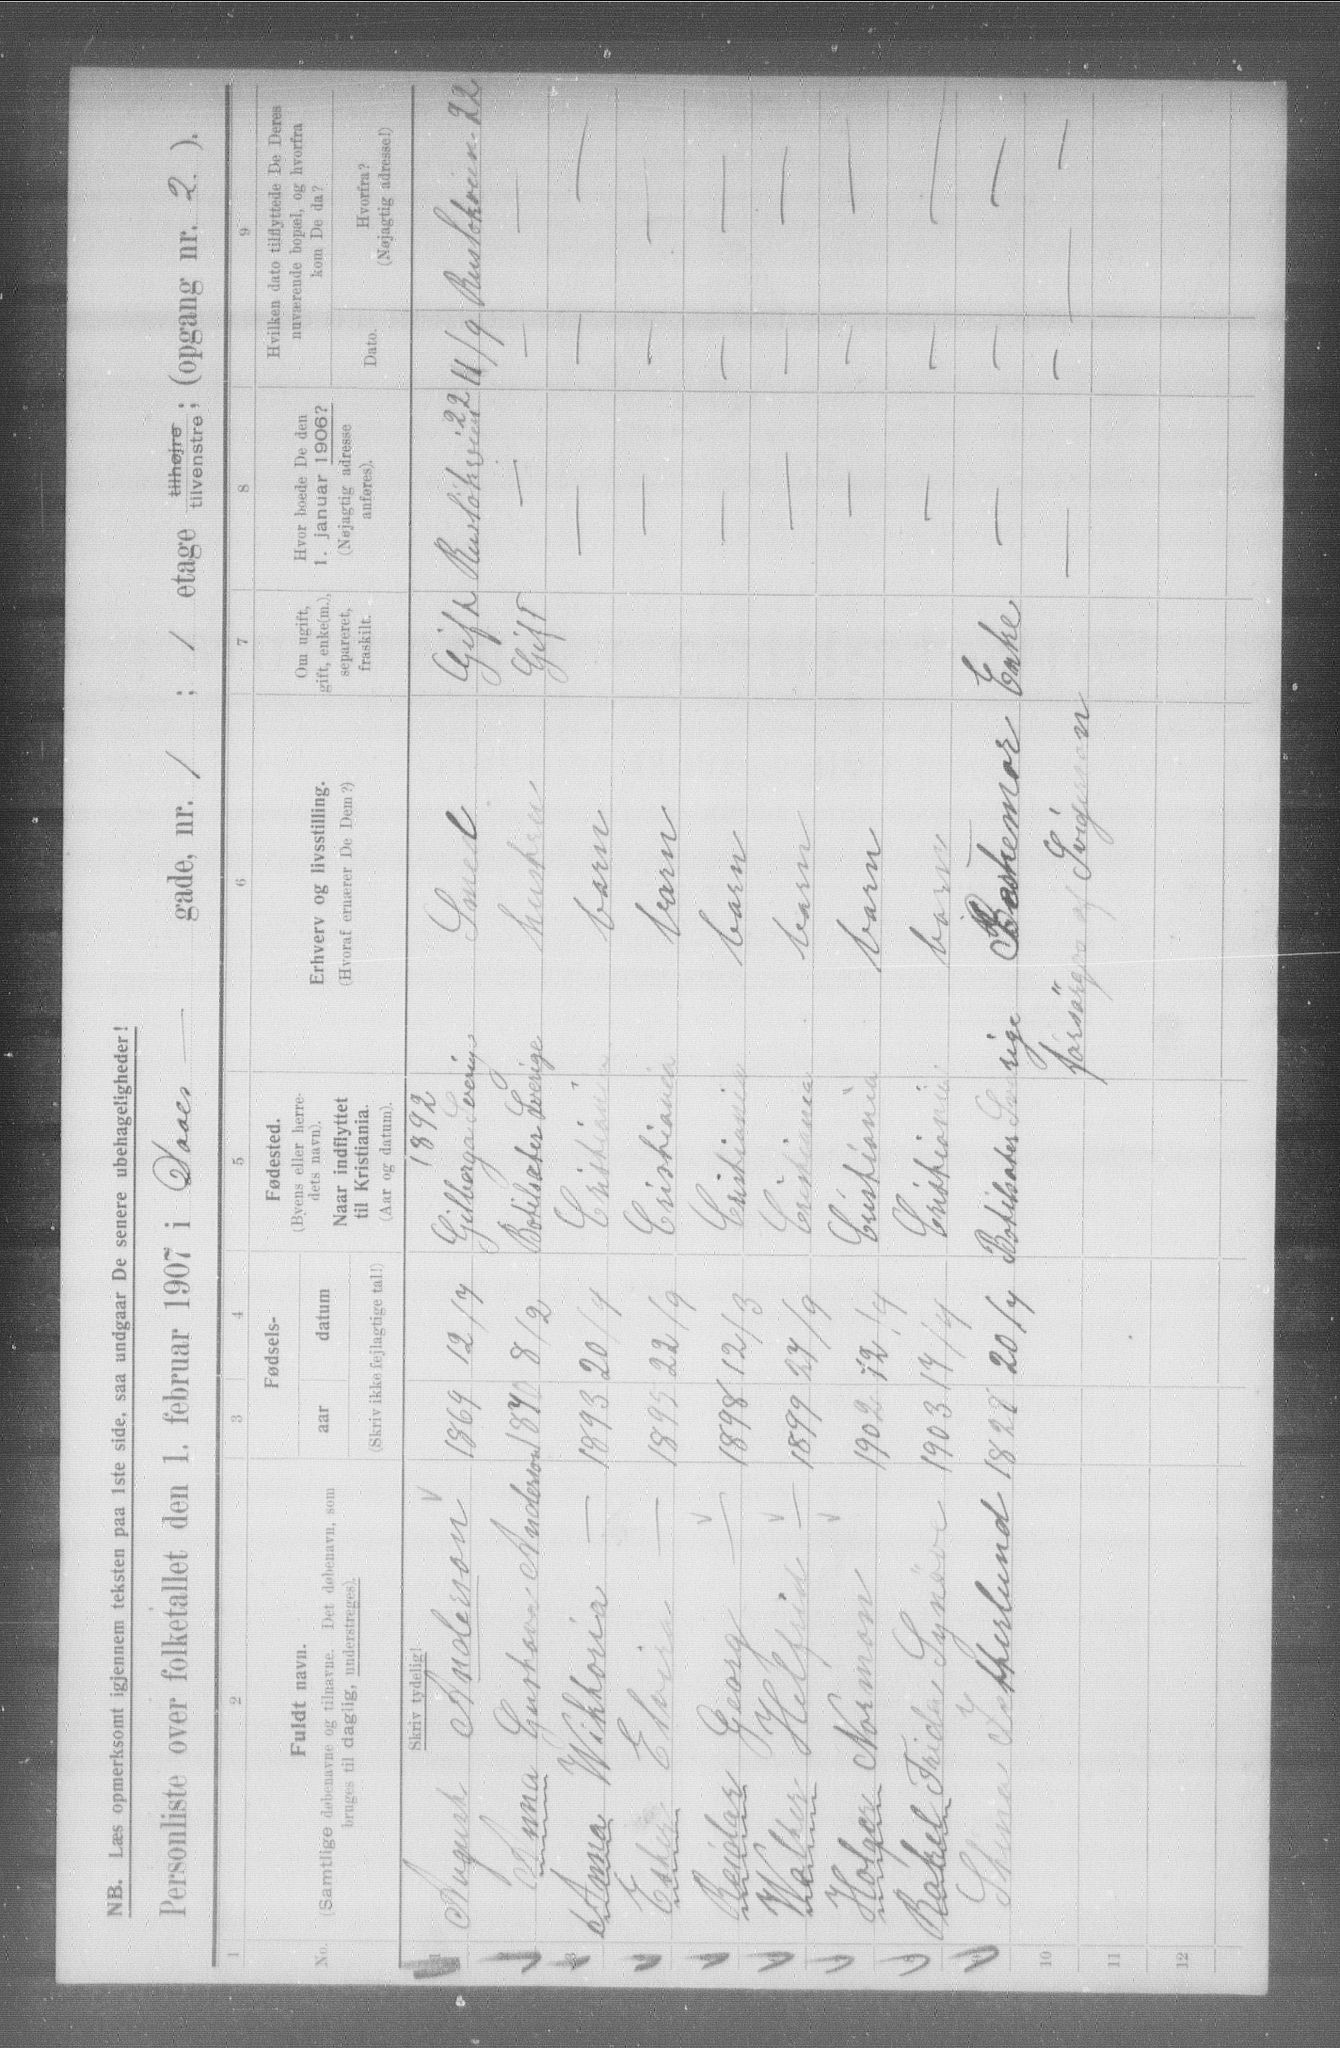 NB. Læs opmerksomt igjennem teksten paa 1ste side, saa undgaar De senere ubehageligheder!
Personliste over folketallet den 1. februar 1907 i gade, nr. 1 ; 1 etage tilhøjre tilvenstre; (opgang nr. 2.).
1 2 3 4 5 6 7 8 9
No. Fuldt navn. (Samtlige døbenavne og tilnavne. Det døbenavn, som bruges til daglig, understreges).
Fødsels- aar datum (Skriv ikke fejlagtige tal!)
Fødested. (Byens eller herredets navn). Naar indflyttet til Kristiania. (Aar og datum).
Erhverv og livsstilling. (Hvoraf ernærer De Dem?)
Om ugift, gift, enke(m.), separeret, fraskilt.
Hvor boede De den 1. januar 1906? (Nøjagtig adresse anføres).
Hvilken dato tilflyttede De Deres nuværende bopæl, og hvorfra kom De da?
Dato. Hvorfra? (Nøjagtig adresse!)
Skriv tydelig!
1892
1 August Anderson 1869 12/7 Gilberga Sverige Smed Gift Rusløkveien 22 11/9 Rusløkveien 22
2 Anna Gustava Anderson 1870 8/2 Botilsäter Sverige hustru Gift — — —
3 Anna Wiktoria — 1893 20/4 Cristiania barn — — —
4 Ester Elvira — 1895 22/9 Cristiania barn — — —
5 Reidar Georg — 1898 12/3 Cristiania barn — — —
6 Walter Helfrid — 1899 27/9 Cristiania barn — — —
7 Holger Norman 1902 12/4 Cristiania barn — — —
8 Rakel Frida Synöve 1903 17/4 Cristiania barn — — —
9 Stina Zetterlund 1828 20/4 Botilsäter Sverige Bestemor Enke — — —
10 försörges af Svigerson — — —
11
12